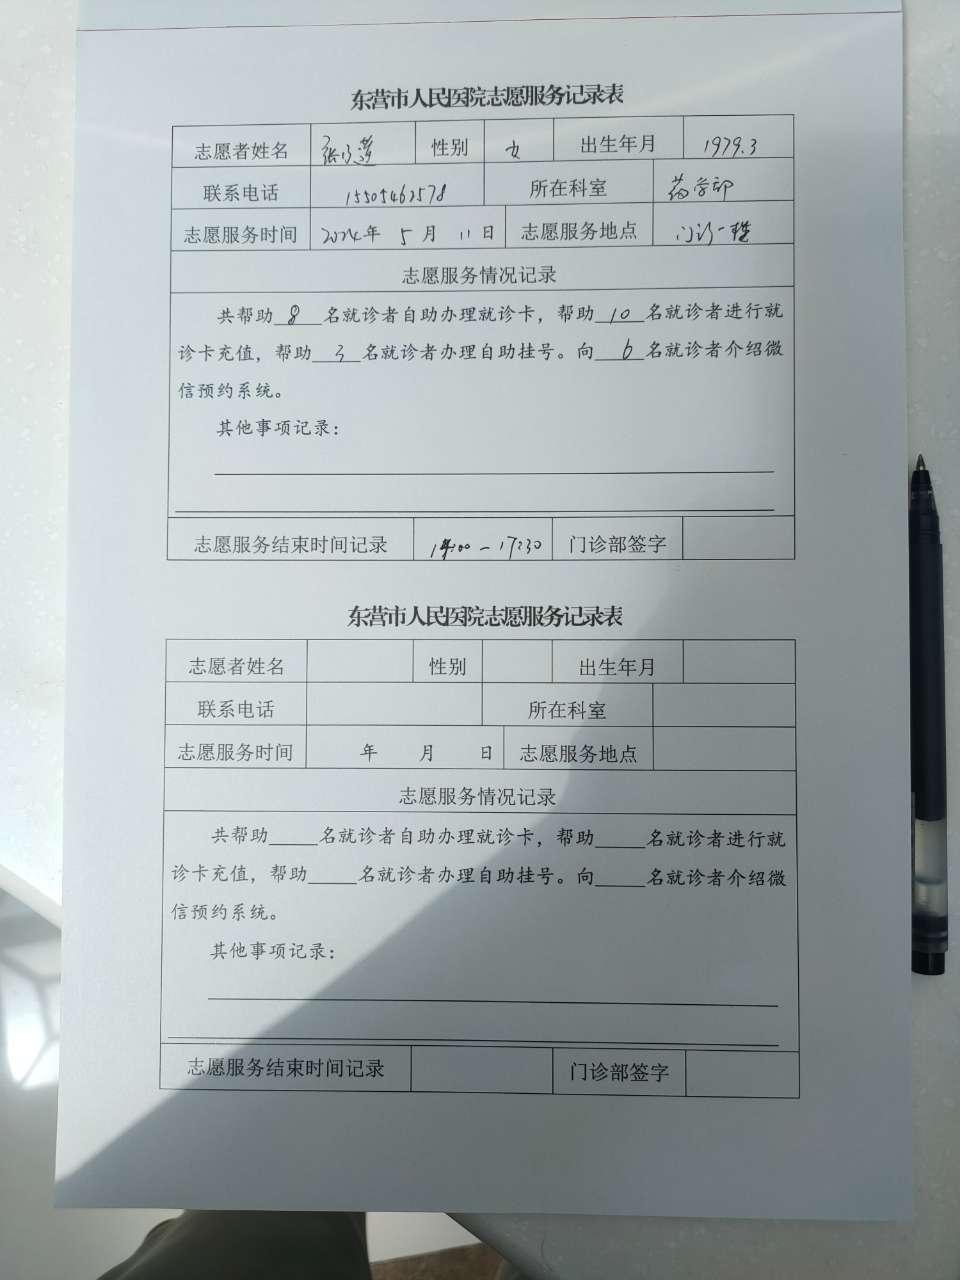 东营市人民医院志愿服务记录表
志愿者姓名 张 莲 性别 女 出生年月 1979.3
联系电话 15505462578 所在科室 药学部
志愿服务时间 2024年 5月 11日 志愿服务地点 门诊一楼
志愿服务情况记录
共帮助 8 名就诊者自助办理就诊卡，帮助 10 名就诊者进行就
诊卡充值，帮助 3 名就诊者办理自助挂号。向 6 名就诊者介绍微
信预约系统。
其他事项记录：
志愿服务结束时间记录 14:00－17:30 门诊部签字
东营市人民医院志愿服务记录表
志愿者姓名 性别 出生年月
联系电话 所在科室
志愿服务时间 年 月 日 志愿服务地点
志愿服务情况记录
共帮助_____名就诊者自助办理就诊卡，帮助_____名就诊者进行就
诊卡充值，帮助_____名就诊者办理自助挂号。向_____名就诊者介绍微
信预约系统。
其他事项记录：
志愿服务结束时间记录 门诊部签字